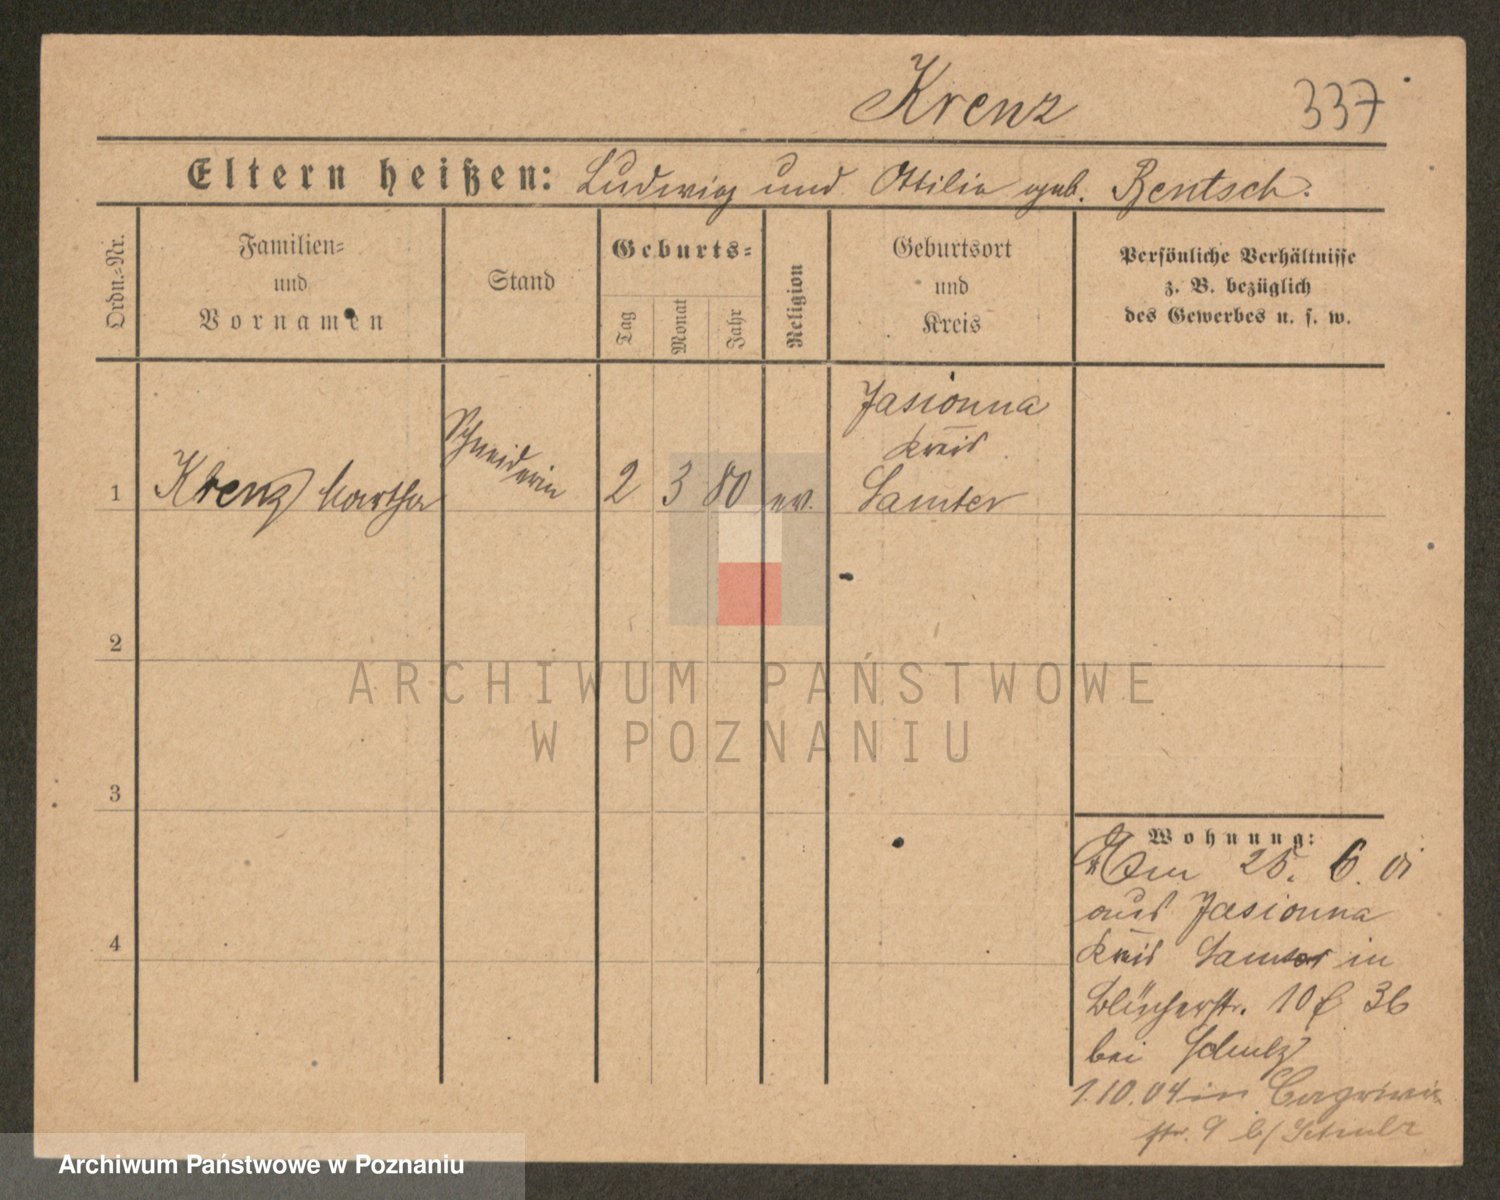 Krenz 337
Eltern heißen: Ludwig und Ottilie geb. Rentsch.
Ordn.-Nr.
Familien-
und
Vornamen
Stand
Geburts-
Tag
Monat
Jahr
Religion
Geburtsort
und
Kreis
Persönliche Verhältnisse
z. B. bezüglich
des Gewerbes u. s. w.
1 Krenz Martha Schneiderin 2 3 80 ev.
Jasionna
Kreis
Samter
2
3
4
Wohnung:
Am 25. 6. 01
aus Jasionna
Kreis Samter in
Blücherstr. 10 36
bei Schulz
1.10.04 in
str. 9 b/ Schulz
ARCHIWUM PAŃSTWOWE
W POZNANIU
Archiwum Państwowe w Poznaniu